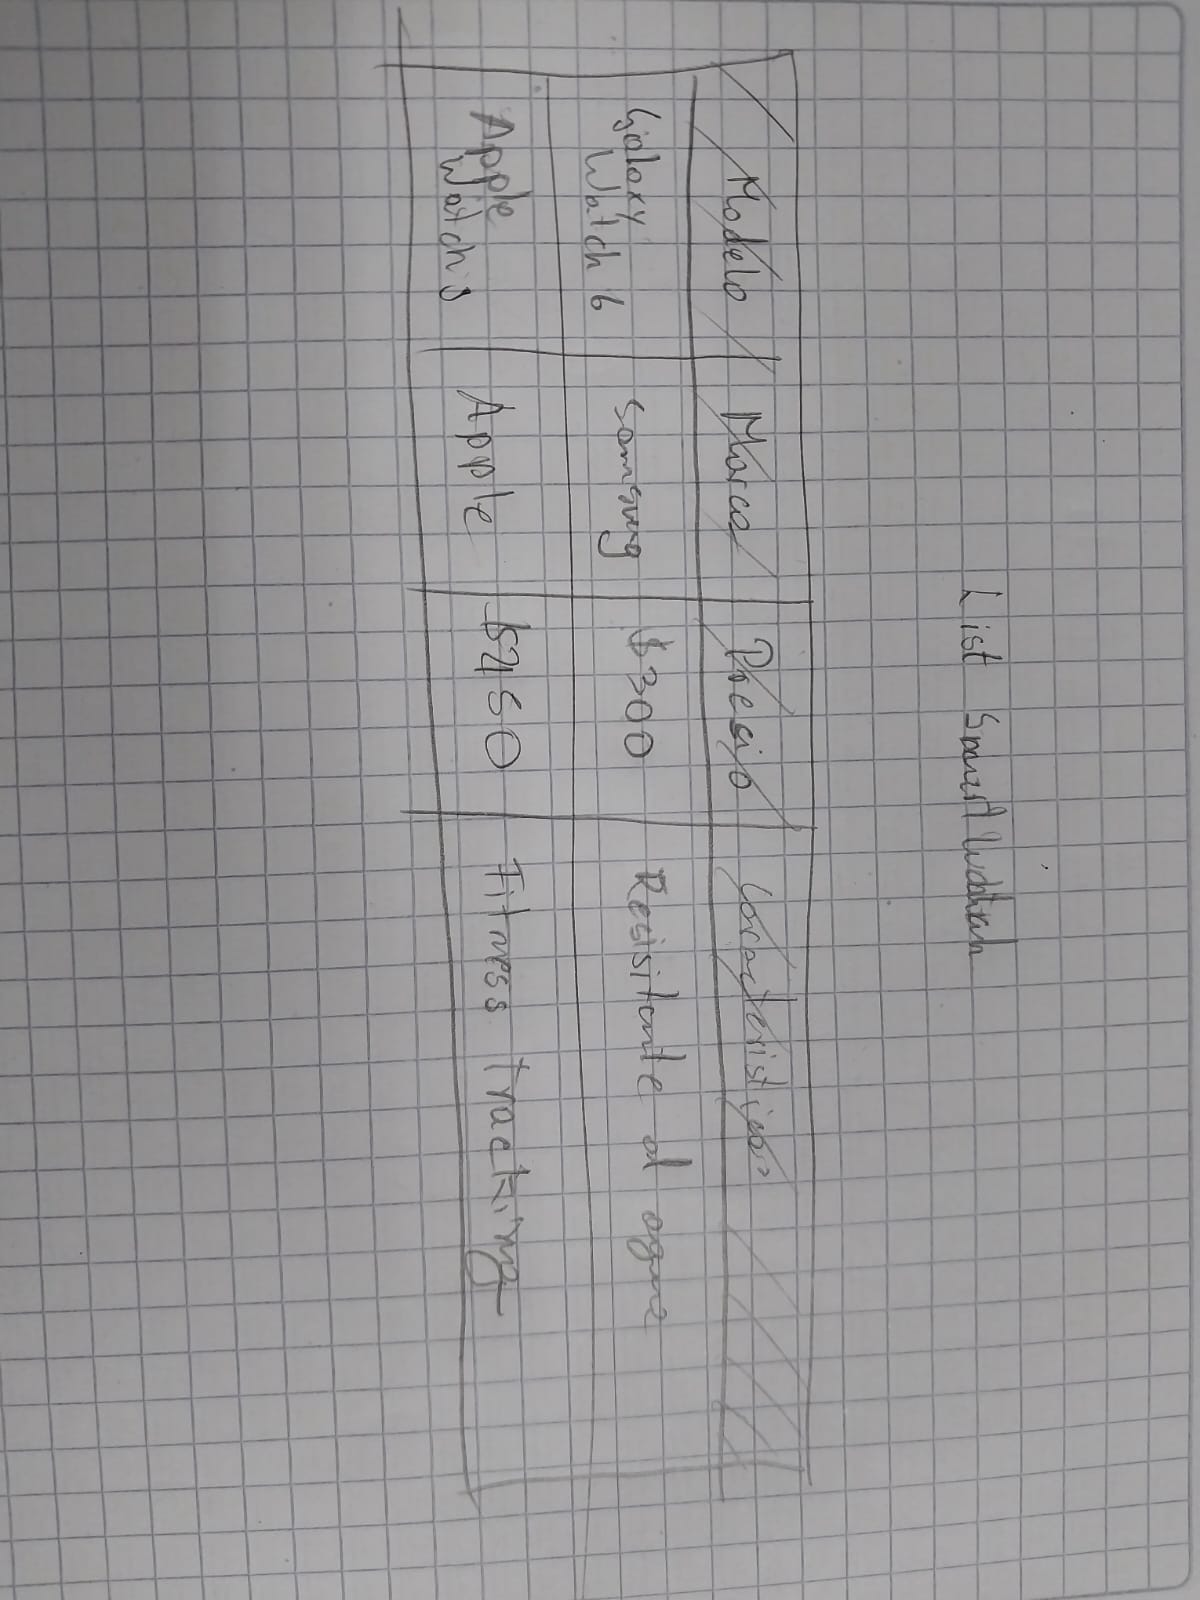 List Smart Watch
Modelo Marca Precio Caracteristicas
Galaxy Watch 6 Samsung $300 Resisitente al agua
Apple Watch 8 Apple $450 Fitness tracking